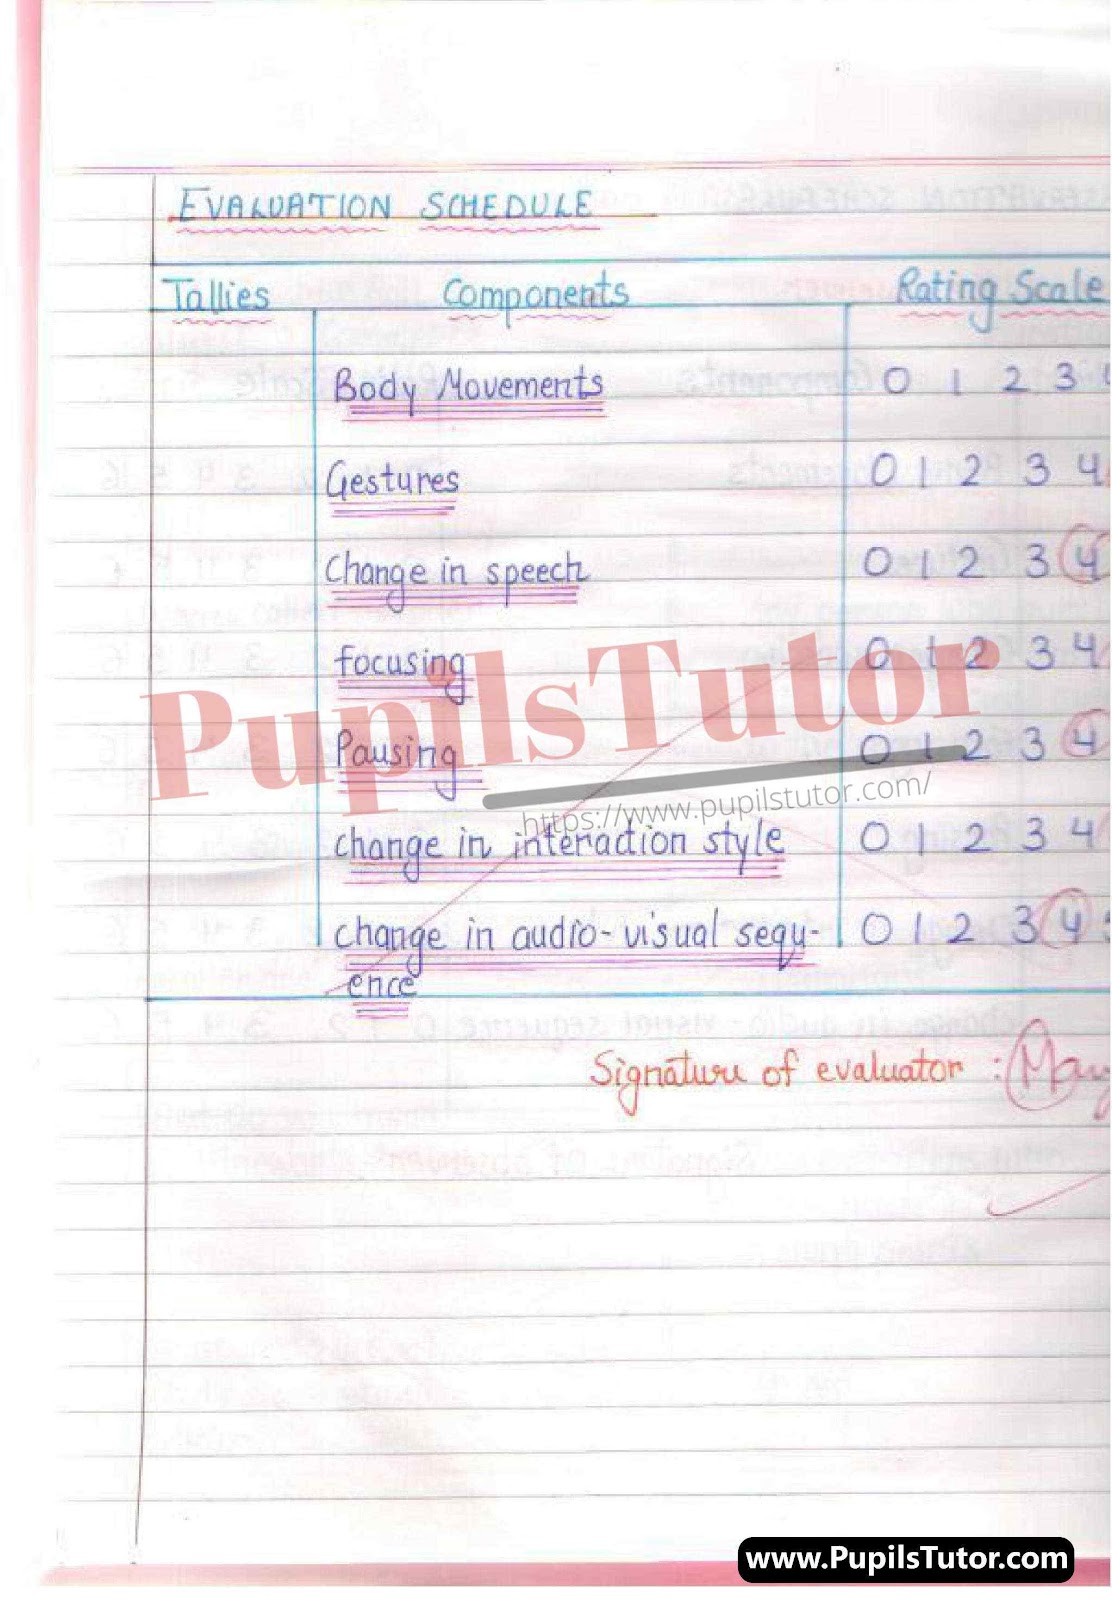 EVALUATION SCHEDULE
Tallies Components Rating Scale
Body Movements 0 1 2 3 4
Gestures 0 1 2 3 4
Change in speech 0 1 2 3 4
focusing 0 1 2 3 4
PupilsTutor
Pausing 0 1 2 3 4
https://www.pupilstutor.com/
change in interaction style 0 1 2 3 4
change in audio-visual sequ- 0 1 2 3 4
ence
Signature of evaluator :
www.PupilsTutor.com